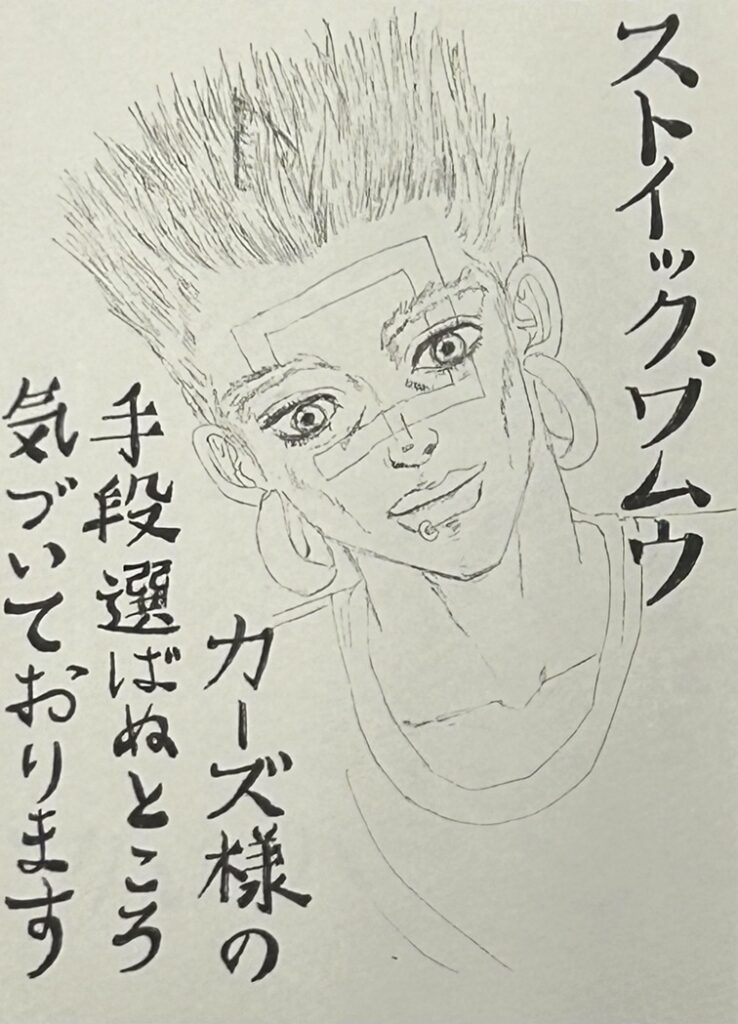 ストイック、ワムウ
カーズ様の
手段選ばぬところ
気づいております